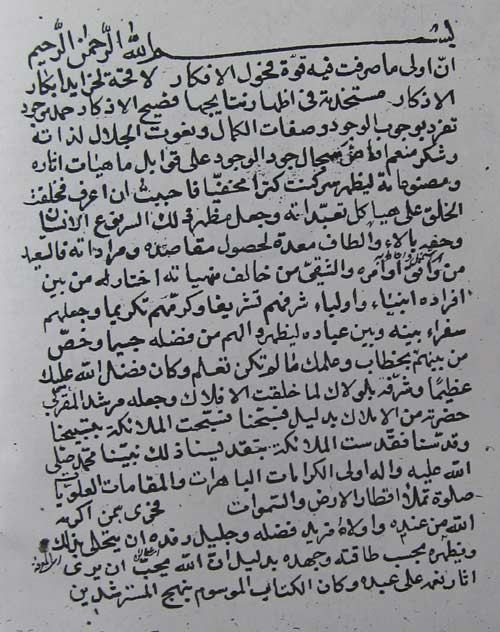 بسم الله الرحمن الرحيم
ان اولى ما صرفت فيه قوة فحول الافكار لاقحة لخرايد ابكار
الاذكار مستخدمة فى اظهار نتايجها فصيح الاذكار حمد موجود
تفرد بوجوب الوجود وصفات الكمال ونعوت الجلال لذاته
وشكر منعم سجال جود الوجود على قوابل ماهيات اثاره
ومصنوعاته ليظهر سر كنت كنزا مخفيا فاحببت ان اعرف فخلقت
الخلق على هياكل تعبداته وجعل مظهر ذلك السر نوع الانسان
وحفه بالاء والطاف معدة لحصول مقاصده ومراداته فالسعيد
من وافق اوامره والشقى من خالف منهياته اختار له من بين
افراده انبياء واولياء شرفهم تشريفا وكرمهم تكريما وجعلهم
سفراء بينه وبين عباده ليظهروا لهم من فضله جسيما وخص
من بينهم بخطاب وعلمك ما لم تكن تعلم وكان فضل الله عليك
عظيما وشرفه بلولاك لما خلقت الافلاك وجعله مرشد المقربى
حضرته من الاملاك بدليل فسبحنا فسبحت الملائكة بتسبيحنا
وقدسنا فقدست الملائكة بتقديسنا ذلك نبينا محمد صلى
الله عليه واله اولى الكرامات الباهرات والمقامات العلويات
صلوة تملا اقطار الارض والسموات فحرى بمن اكرمه
الله من عنده واولاه فريد فضله وجليل رفده ان يتحلى بذلك
ويظهره بحسب طاقته وجهده بدليل ان الله يحب ان يرى
اثار نعمه على عبده وكان الكتاب الموسوم بنهج المسترشدين